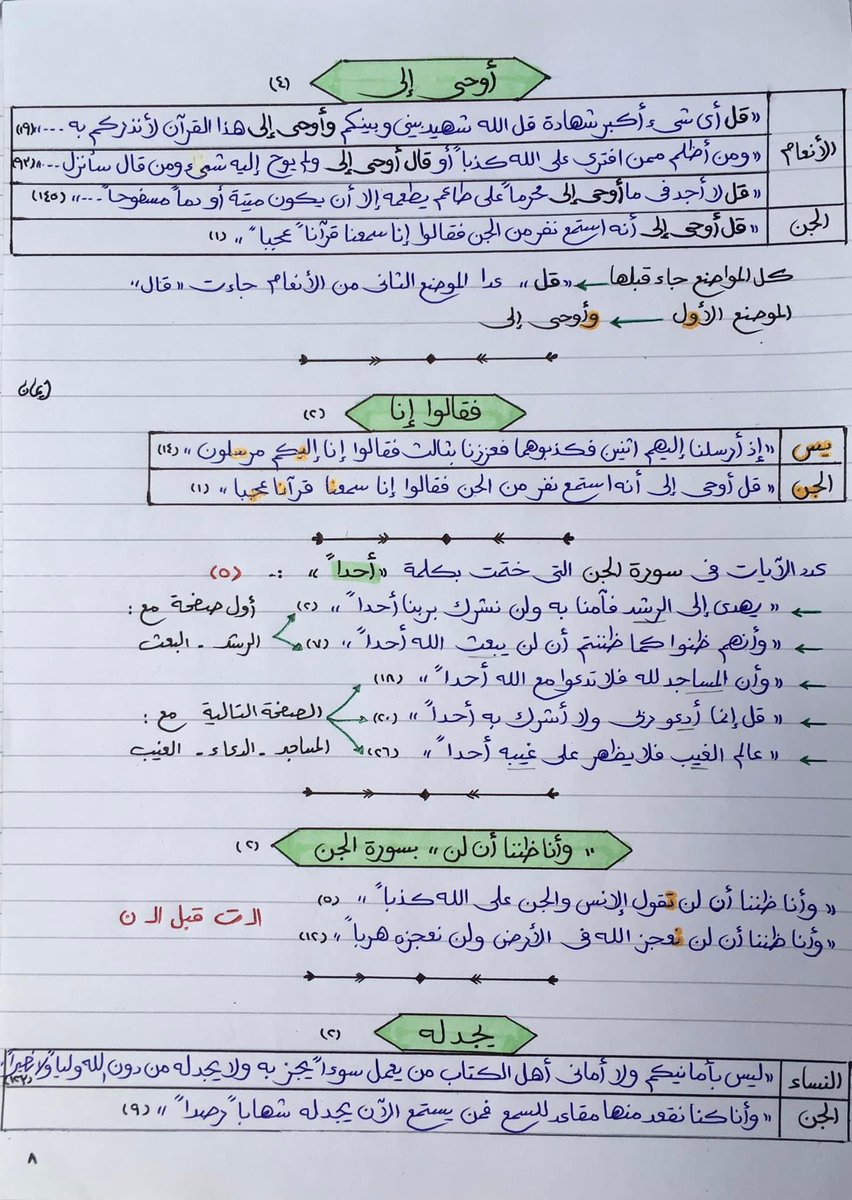 أوحى إلى (٤)
الأنعام
«قل أى شىء أكبر شهادة قل الله شهيد بينى وبينكم وأوحى إلى هذا القرآن لأنذركم به ...» (١٩)
«ومن أظلم ممن افترى على الله كذباً أو قال أوحى إلى ولم يوح إليه شىء ومن قال سأنزل ...» (٩٣)
«قل لا أجد فى ما أوحى إلى محرماً على طاعم يطعمه إلا أن يكون ميتة أو دماً مسفوحاً ...» (١٤٥)
الجن «قل أوحى إلى أنه استمع نفر من الجن فقالوا إنا سمعنا قرآناً عجباً» (١)
كل المواضع جاء قبلها ← «قل» عدا الموضع الثانى من الأنعام جاءت «قال»
الموضع الأول ← وأوحى إلى
إيمان
فقالوا إنا (٢)
يس «إذ أرسلنا إليهم اثنين فكذبوهما فعززنا بثالث فقالوا إنا إليكم مرسلون» (١٤)
الجن «قل أوحى إلى أنه استمع نفر من الجن فقالوا إنا سمعنا قرآنا عجبا» (١)
عدد الآيات فى سورة الجن التى ختمت بكلمة «أحداً» :- (٥)
← «يهدى إلى الرشد فآمنا به ولن نشرك بربنا أحداً» (٢) أول صفحة مع :
← «وأنهم ظنوا كما ظننتم أن لن يبعث الله أحداً» (٧) الرشد - البعث
← «وأن المساجد لله فلا تدعوا مع الله أحداً» (١٨)
← «قل إنما أدعو ربى ولا أشرك به أحداً» (٢٠) الصفحة التالية مع :
← «عالم الغيب فلا يظهر على غيبه أحداً» (٢٦) المساجد - الدعاء - الغيب
«وأنا ظننا أن لن» بسورة الجن (٢)
«وأنا ظننا أن لن تقول الإنس والجن على الله كذباً» (٥)
الـ ت قبل الـ ن
«وأنا ظننا أن لن نعجز الله فى الأرض ولن نعجزه هرباً» (١٢)
يجد له (٢)
النساء «ليس بأمانيكم ولا أمانى أهل الكتاب من يعمل سوءاً يجز به ولا يجد له من دون الله ولياً ولا نصيراً» (١٢٣)
الجن «وأنا كنا نقعد منها مقاعد للسمع فمن يستمع الآن يجد له شهاباً رصداً» (٩)
٨